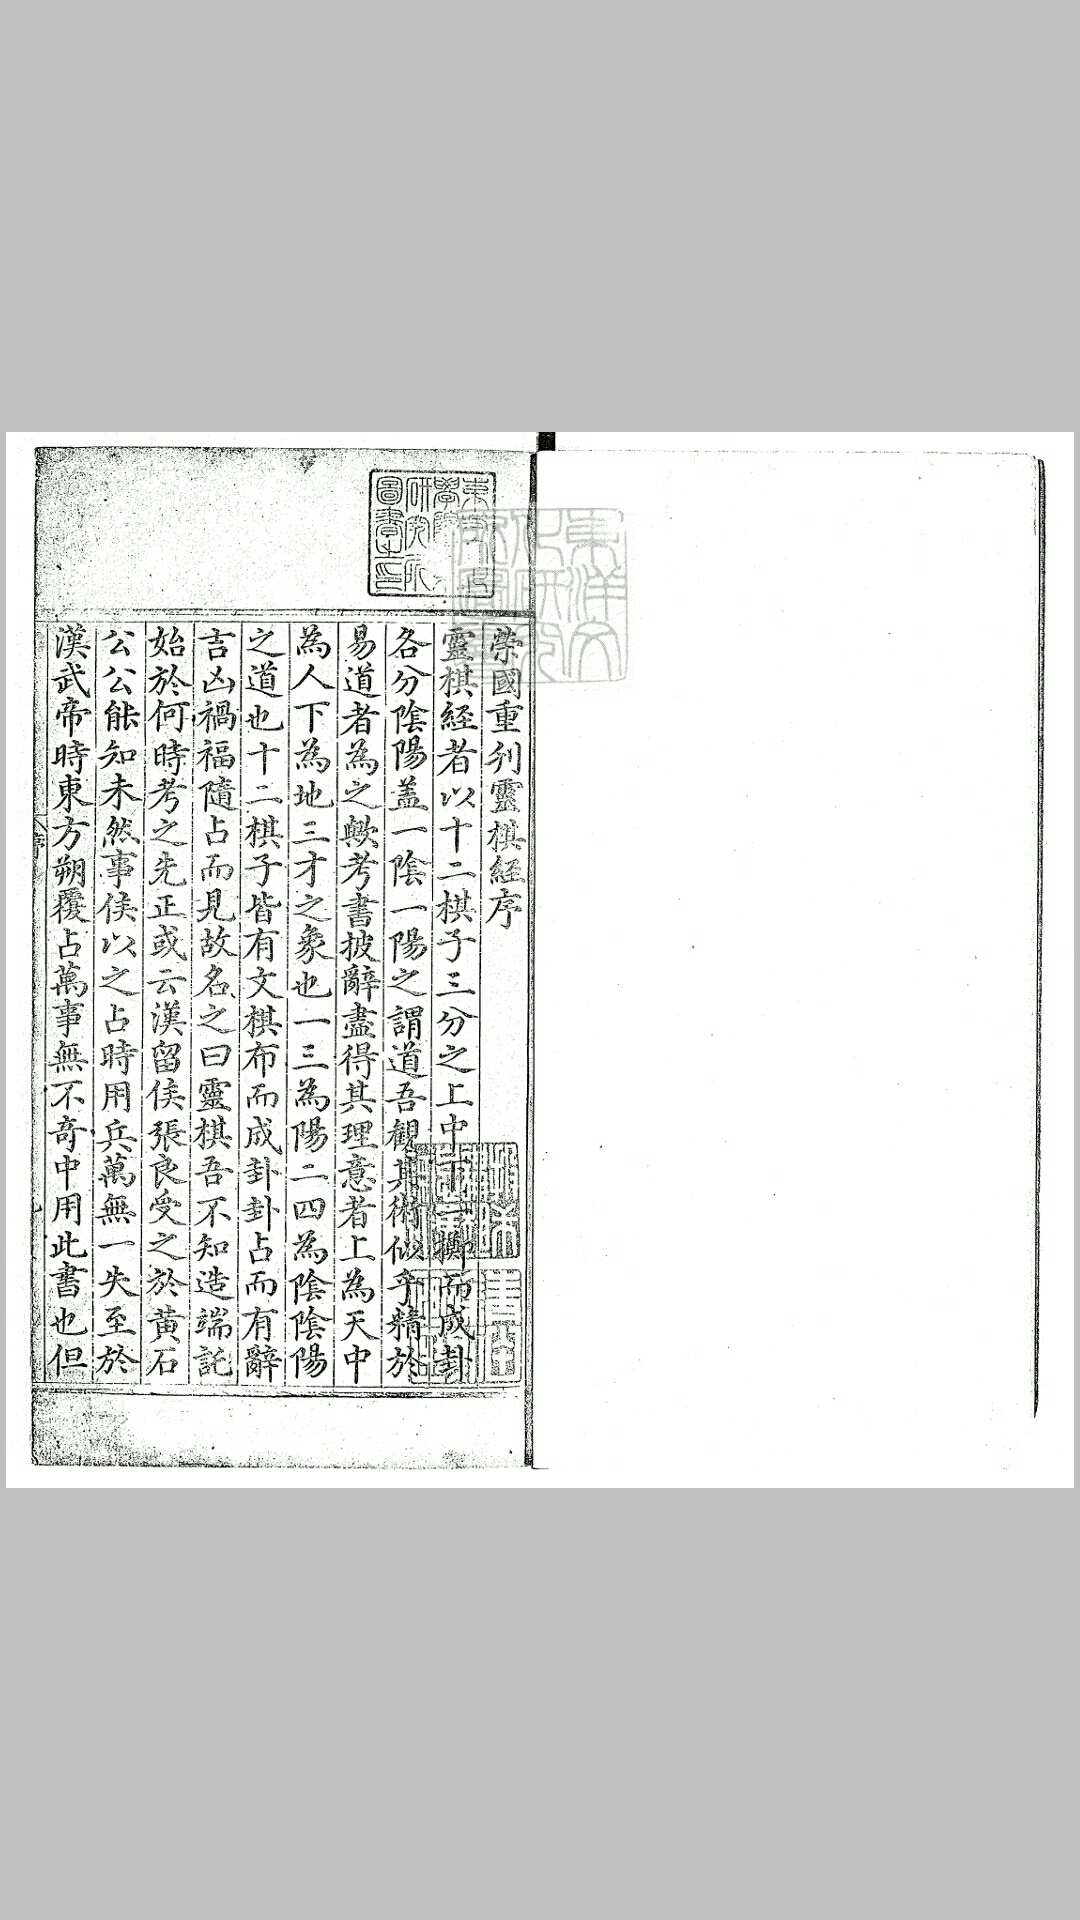 榮國重刋靈棋經序
靈棋經者以十二棋子三分之上中下一擲而成卦
各分陰陽盖一陰一陽之謂道吾観其術似乎精於
易道者為之歟考書披辭盡得其理意者上為天中
為人下為地三才之象也一三為陽二四為陰陰陽
之道也十二棋子皆有文棋布而成卦卦占而有辭
吉凶禍福隨占而見故名之曰靈棋吾不知造端託
始於何時考之先正或云漢留侯張良受之於黄石
公公能知未然事侯以之占時用兵萬無一失至於
漢武帝時東方朔覆占萬事無不奇中用此書也但